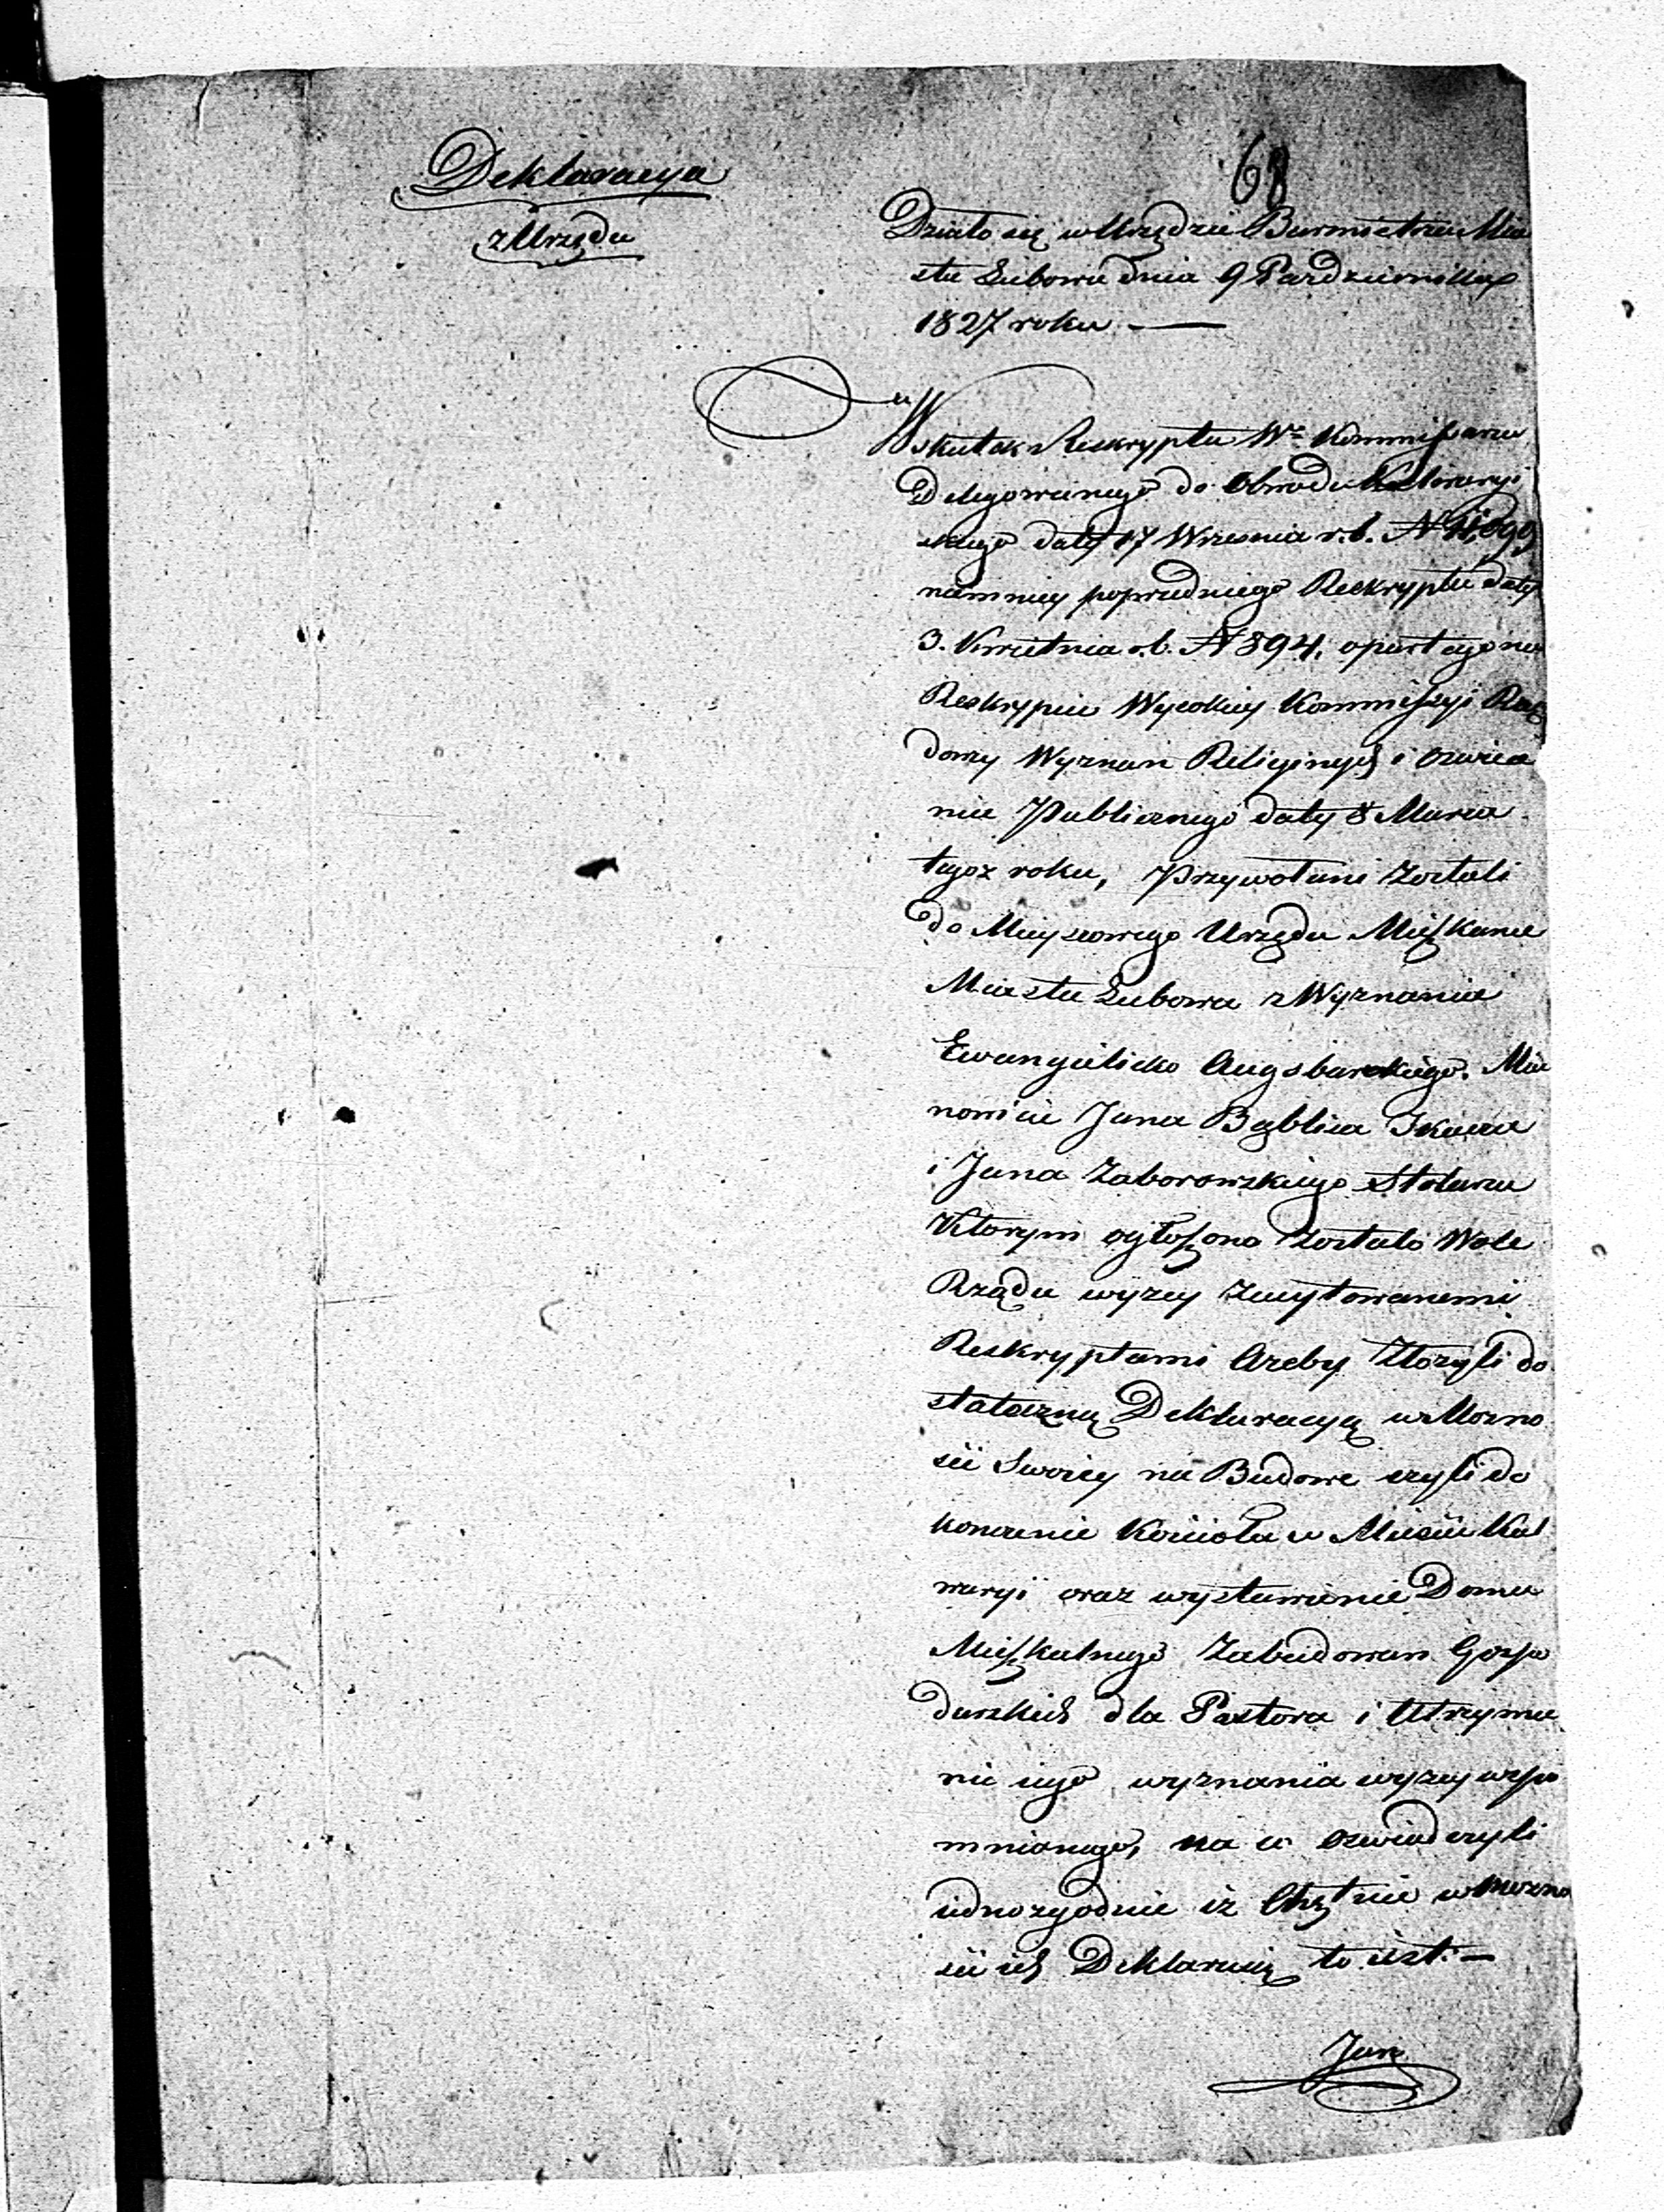 68
Deklaracya
z Urzędu
Działo się w Urzędzie Burmistrza Mia
sta Lubowa dnia 9 Pazdziernika
1827 roku
W skutek Reskryptu Wo Kommissarza
Delegowanego do Obwodu Kalwaryi
skiego daty 17 Wrzesnia r. b. N
niemniey poprzedniego Reskryptu daty
3. Kwietnia r. b. N 894, opartego na
Reskrypcie Wysokiey Kommissyi Rzą
dowey Wyznan Religinych i Oswiec
nia Publicznego daty 8 Marca
tegoz roku, Przywołani zostali
do Mieyscowego Urzędu Mieszkance
Miasta Lubowa z Wyznania
Ewangelicko Augsburskiego. Mia
nowicie Jana Bąblica Tkacza
i Jana Zaborowskiego Stolarza
Ktorym ogłoszono zostało Wole
Rządu wyzey zacytowanemi
Reskryptami Azeby złozyli do
stateczną Deklaracyą w Mozno
sci Swoiey na Budowe czyli do
konczenie Kosciola w Miescie Kal
waryi oraz wystawienie Domu
Mieszkalnego Zabudowan Gospo
darskich dla Pastora i Utrzyma
nie iego wyznania wyzey wspo
mnionego, na co oswiadczyli
iednozgodnie iz Chętnie w mozno
sci ich Deklaruią to iest: —
Jan